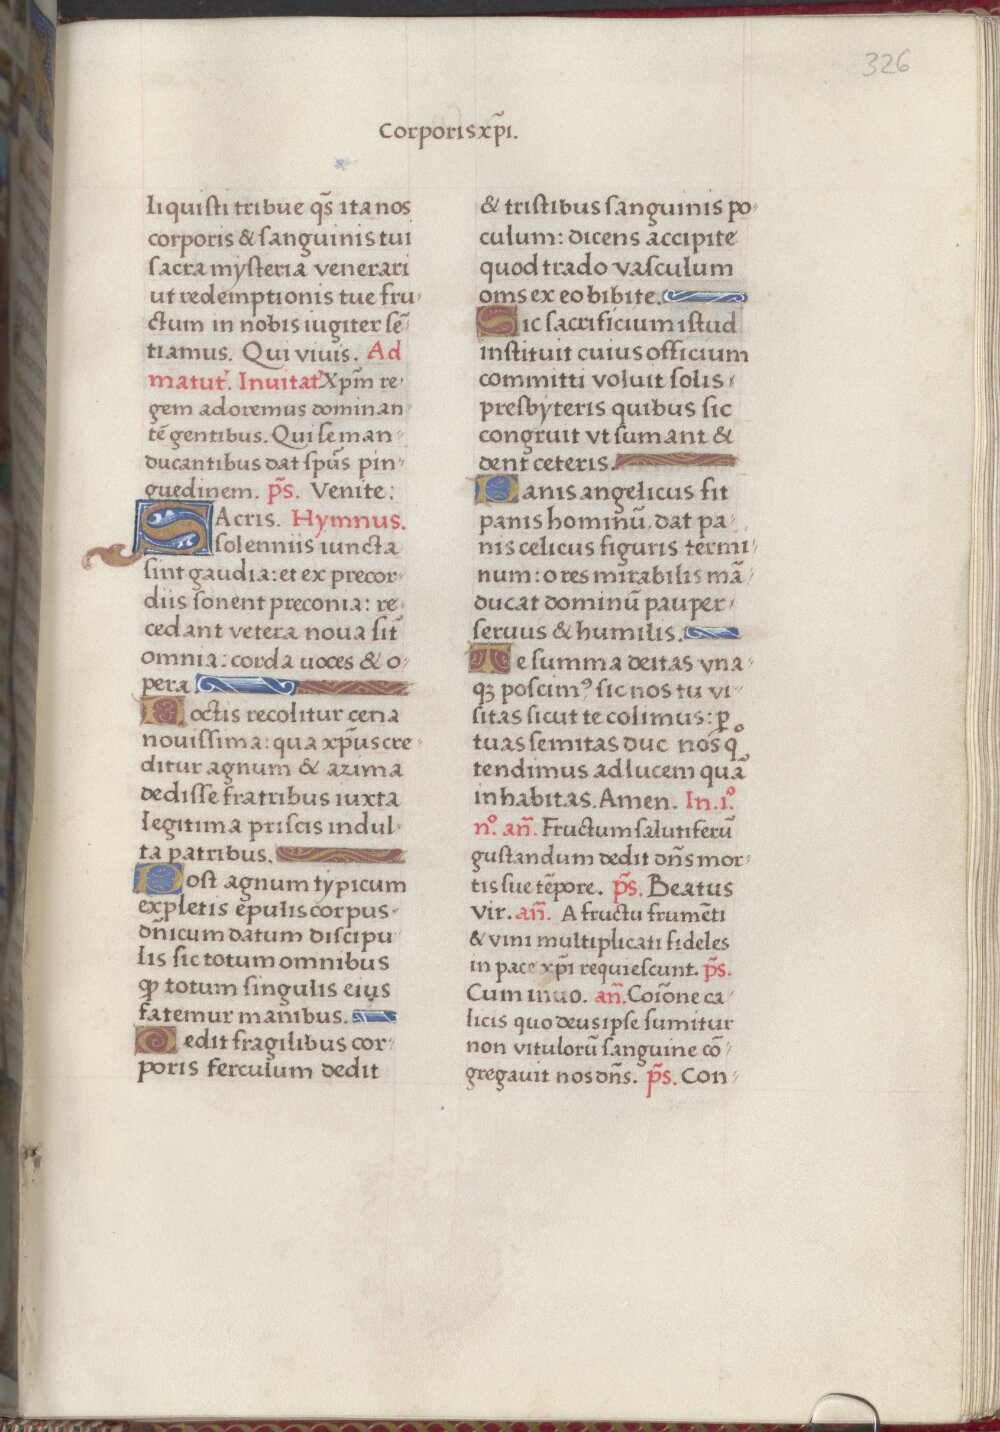 326
Corporis xp̃i.
liquisti tribue qs̃ ita nos
corporis & sanguinis tui
sacra mysteria venerari
ut redemptionis tue fru-
ctum in nobis iugiter sẽ-
tiamus. Qui vivis. Ad
matut'. Invitat' Xpm̃ re-
gem adoremus dominan-
tẽ gentibus. Qui se man-
ducantibus dat spũs pin-
guedinem. ps̃. Venite:
SAcris. Hymnus.
solenniis iuncta
sint gaudia: et ex precor-
diis sonent preconia: re-
cedant vetera nova sit̃
omnia: corda voces & o-
pera.
Noctis recolitur cena
novissima: qua xp̃us cre-
ditur agnum & azima
dedisse fratribus iuxta
legitima priscis indul-
ta patribus.
Post agnum typicum
expletis epulis corpus-
dñicum datum discipu
lis sic totum omnibus
ꝙ totum singulis eius
fatemur manibus.
Dedit fragilibus cor-
poris ferculum dedit
& tristibus sanguinis po-
culum: dicens accipite
quod trado vasculum
oms ex eo bibite.
Sic sacrificium istud
instituit cuius officium
committi voluit solis-
presbyteris quibus sic
congruit ut sumant &
dent ceteris.
Panis angelicus fit
panis hominũ, dat pa-
nis celicus figuris termi-
num: o res mirabilis mã-
ducat dominũ pauper-
servus & humilis.
Te summa deitas una-
qꝫ poscimꝰ sic nos tu vi-
sitas sicut te colimus: ꝑ
tuas semitas duc nos qͦ
tendimus ad lucem quã
inhabitas. Amen. In .iº.
nº. añ. Fructum salutiferũ
gustandum dedit dñs mor-
tis sue tẽpore. ps̃. Beatus
vir. añ. A fructu frumẽti
& vini multiplicati fideles
in pace xp̃i requiescunt. ps̃.
Cum invo. añ. Coĩone ca-
licis quo deus ipse sumitur
non vitulorũ sanguine cõ-
gregavit nos dñs. ps̃. Con-